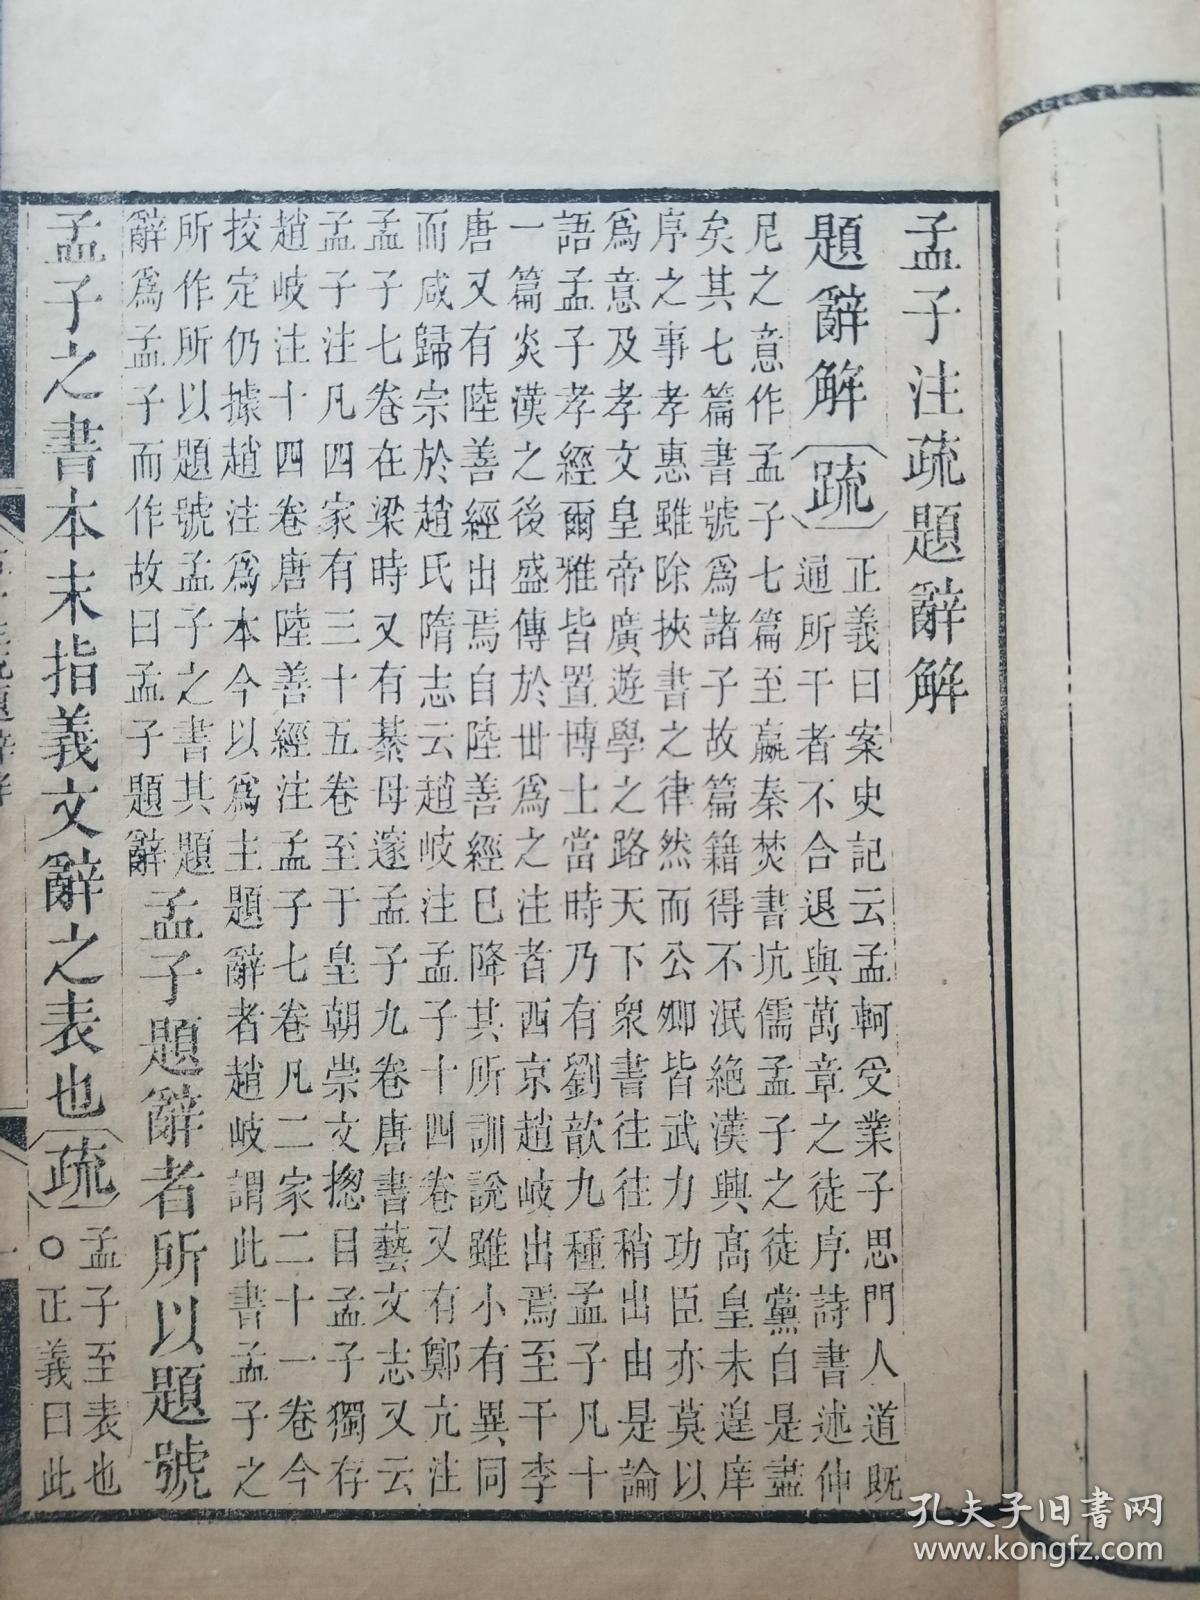 孟子注疏題辭解
題辭解〔疏〕
正義曰案史記云孟軻受業子思門人道既
通所干者不合退與萬章之徒序詩書述仲
尼之意作孟子七篇至嬴秦焚書坑儒孟子之徒黨自是盡
矣其七篇書號爲諸子故篇籍得不泯絶漢興高皇未遑庠
序之事孝惠雖除挾書之律然而公卿皆武力功臣亦莫以
爲意及孝文皇帝廣遊學之路天下衆書往往稍出由是論
語孟子孝經爾雅皆置博士當時乃有劉歆九種孟子凡十
一篇炎漢之後盛傳於丗爲之注者西京趙岐出焉至于李
唐又有陸善經出焉自陸善經已降其所訓說雖小有異同
而咸歸宗於趙氏隋志云趙岐注孟子十四卷又有鄭亢注
孟子七卷在梁時又有綦母邃孟子九卷唐書藝文志又云
孟子注凡四家有三十五卷至于皇朝崇文揔目孟子獨存
趙岐注十四卷唐陸善經注孟子七卷凡二家二十一卷今
挍定仍據趙注爲本今以爲主題辭者趙岐謂此書孟子之
所作所以題號孟子之書其題
辭爲孟子而作故曰孟子題辭
孟子題辭者所以題號
孟子之書本末指義文辭之表也〔疏〕
孟子至表也
○正義曰此
孔夫子旧书网
www.kongfz.com